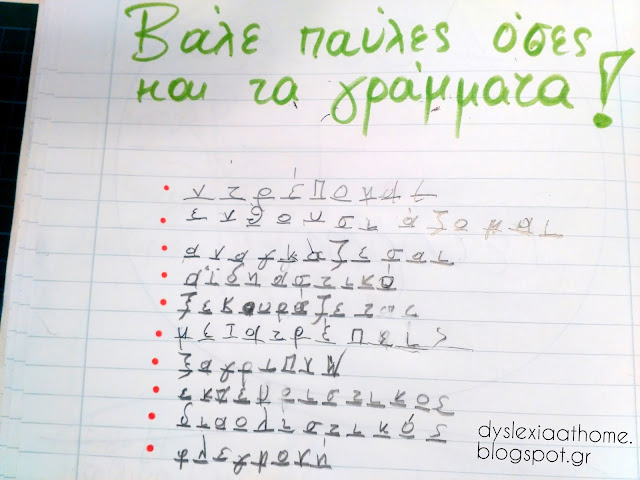 Βάλε παύλες όσες
και τα γράμματα!
ντρέπομαι
ενθουσιάζομαι
αναγκάζεσαι
αϊδιαστικό
ξεκουράζεται
μετατρέπεις
ξαγρυπνώ
εκπεμπιστικός
διασμιστικός
φλεγμονή
dyslexiaathome.
blogspot.gr